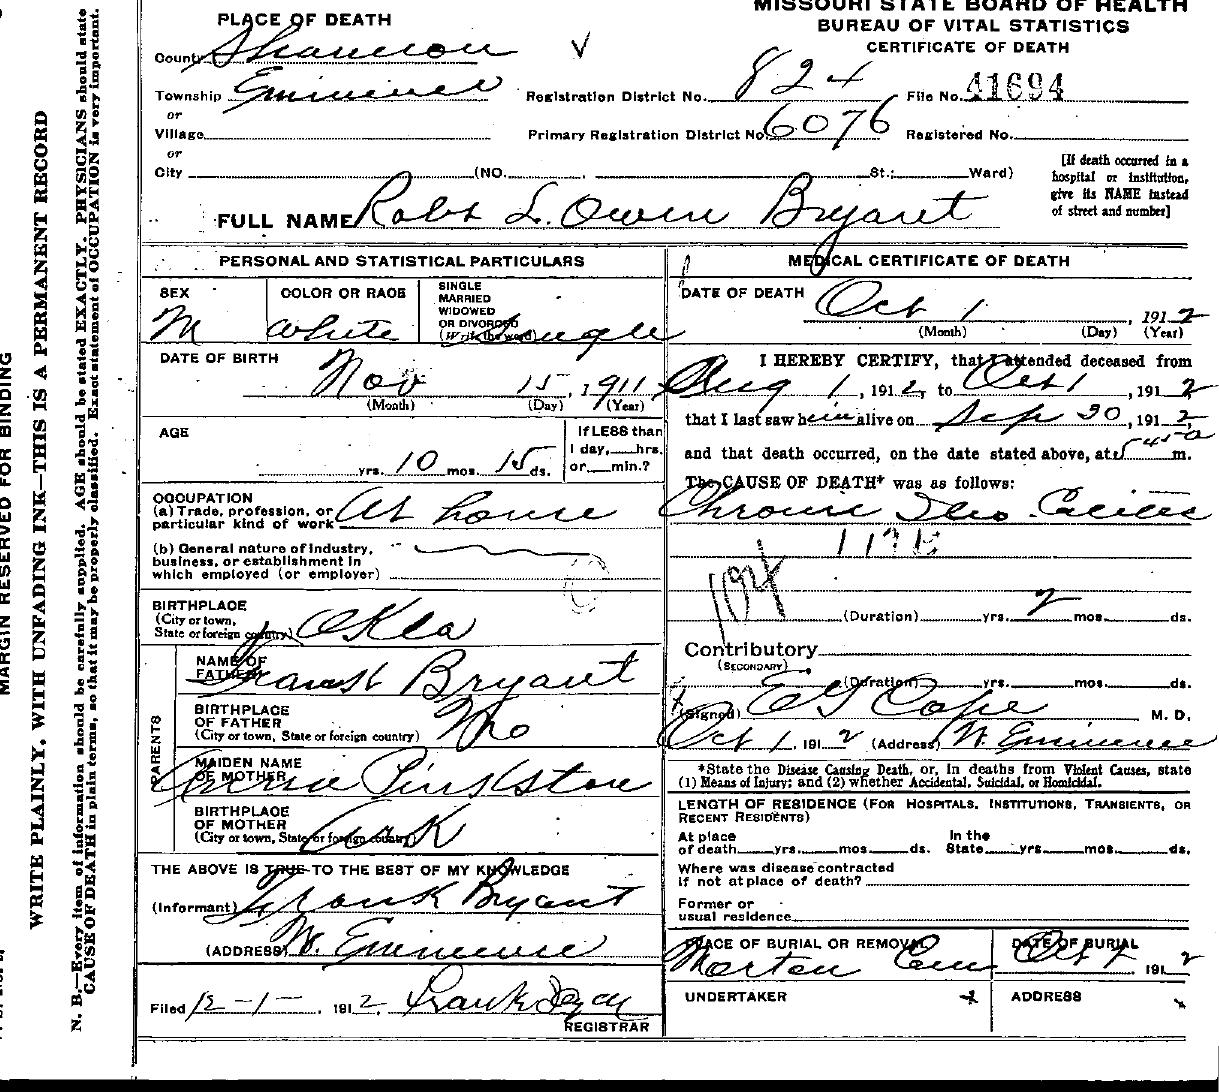 MISSOURI STATE BOARD OF HEALTH
BUREAU OF VITAL STATISTICS
CERTIFICATE OF DEATH
PLACE OF DEATH
County Shannon
Township Eminence
or
Village
or
City (NO. St.; Ward)
Registration District No. 824 File No. 41694
Primary Registration District No. 6076 Registered No.
[If death occurred in a
hospital or institution,
give its NAME instead
of street and number]
FULL NAME Robt L. Owen Bryant
PERSONAL AND STATISTICAL PARTICULARS
SEX
M
COLOR OR RACE
White
SINGLE
MARRIED
WIDOWED
OR DIVORCED
(Write the word) Single
DATE OF BIRTH
Nov 15, 1911
(Month) (Day) (Year)
AGE
yrs. 10 mos. 15 ds.
If LESS than
1 day, hrs.
or min.?
OCCUPATION
(a) Trade, profession, or
particular kind of work At home
(b) General nature of industry,
business, or establishment in
which employed (or employer)
BIRTHPLACE
(City or town,
State or foreign country) Okla
PARENTS
NAME OF
FATHER Frank Bryant
BIRTHPLACE
OF FATHER
(City or town, State or foreign country) Mo
MAIDEN NAME
OF MOTHER Pinkston
BIRTHPLACE
OF MOTHER
(City or town, State or foreign country) Ark
THE ABOVE IS TRUE TO THE BEST OF MY KNOWLEDGE
(Informant) Frank Bryant
(ADDRESS) W. Eminence
Filed 12-1-, 1912 Frank
REGISTRAR
MEDICAL CERTIFICATE OF DEATH
DATE OF DEATH
Oct 1, 1912
(Month) (Day) (Year)
I HEREBY CERTIFY, that I attended deceased from
Aug 1, 1912, to Oct 1, 1912
that I last saw him alive on Sep 30, 1912,
and that death occurred, on the date stated above, at 545a m.
The CAUSE OF DEATH* was as follows:
Chronic Ileo Colitis
104
(Duration) yrs. 2 mos. ds.
Contributory
(SECONDARY)
(Duration) yrs. mos. ds.
(Signed) E G Cope M. D.
Oct 1, 1912 (Address) W. Eminence
*State the Disease Causing Death, or, in deaths from Violent Causes, state
(1) Means of Injury; and (2) whether Accidental, Suicidal, or Homicidal.
LENGTH OF RESIDENCE (FOR HOSPITALS, INSTITUTIONS, TRANSIENTS, OR
RECENT RESIDENTS)
At place In the
of death yrs. mos. ds. State yrs. mos. ds.
Where was disease contracted
if not at place of death?
Former or
usual residence
PLACE OF BURIAL OR REMOVAL
Morton Cem
DATE OF BURIAL
Oct 2, 1912
UNDERTAKER
ADDRESS
MARGIN RESERVED FOR BINDING
WRITE PLAINLY, WITH UNFADING INK—THIS IS A PERMANENT RECORD
N. B.—Every item of information should be carefully supplied. AGE should be stated EXACTLY. PHYSICIANS should state
CAUSE OF DEATH in plain terms, so that it may be properly classified. Exact statement of OCCUPATION is very important.